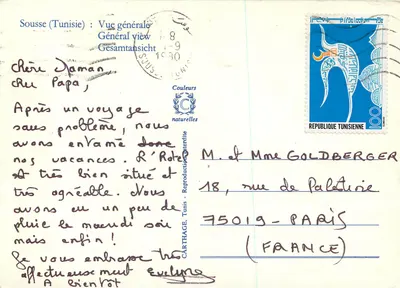 Sousse (Tunisie) : Vue générale
General view
Gesamtansicht
8
-9
1980
Chère Maman
cher Papa,
Après un voyage
sans problème, nous
avons entamé donc
nos vacances. L'Hotel
est très bien situé et
très agréable. Nous
avons eu un peu de
pluie le mardi soir
mais enfin !
Je vous embrasse très
affectueusement Evelyne
A bientôt
Couleurs
C
naturelles
CARTHAGE, Tunis - Reproduction interdite
REPUBLIQUE TUNISIENNE
100
M. et Mme GOLDBERGER
18, rue de Palestine
75019 - PARIS
(FRANCE)